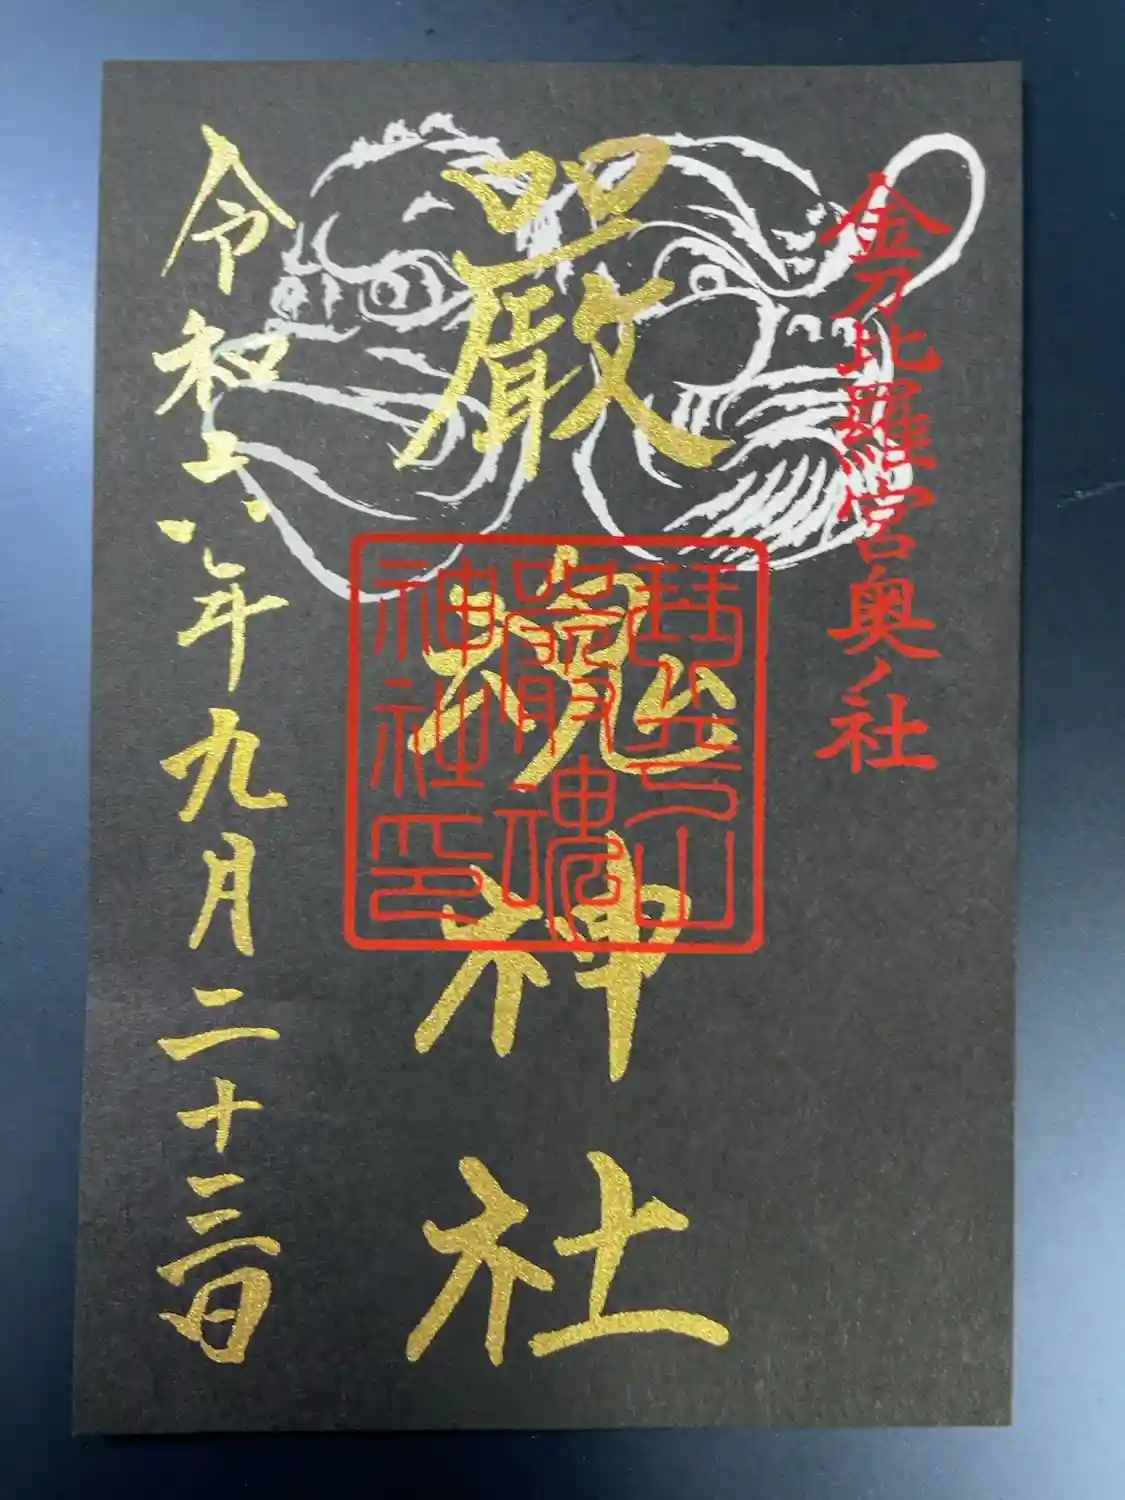 金刀比羅宮奥ノ社
嚴魂神社
琴平山
嚴魂
神社印
令和六年九月二十三日